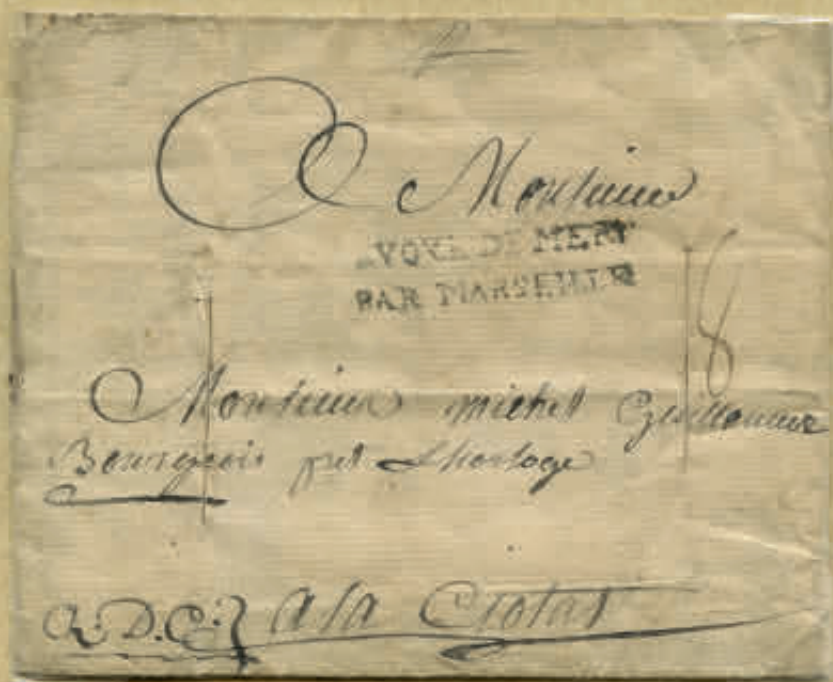 A Monsieur
VOYE DE MER
PAR MARSEILLE
18
Monsieur michel
Bourgeois prés L'horloge
a la Ciotat